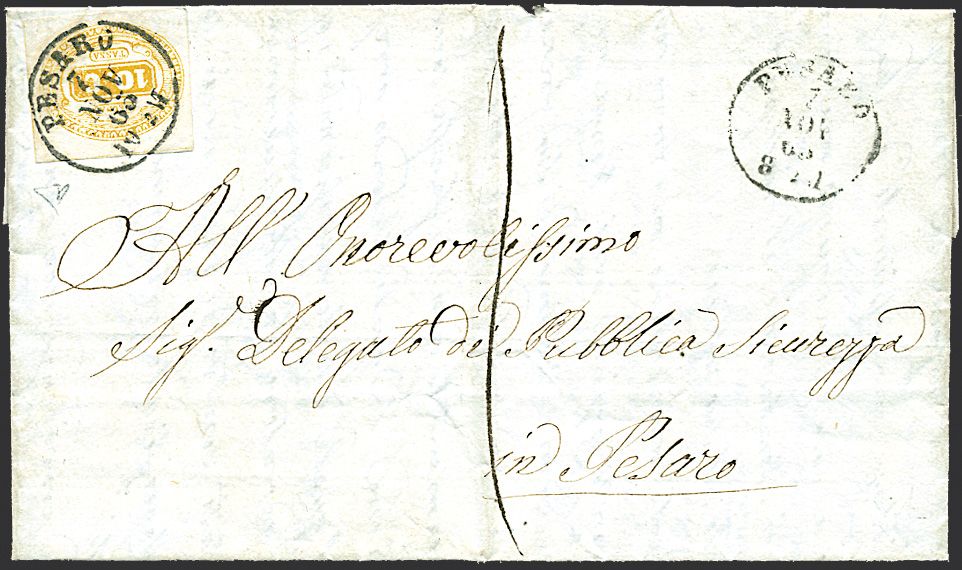 PESARO
7
NOV
63
10 M
10 C
TASSA
PESARO
7
NOV
63
8
All' Onorevolissimo
Sigr. Delegato di Pubblica Sicurezza
in Pesaro